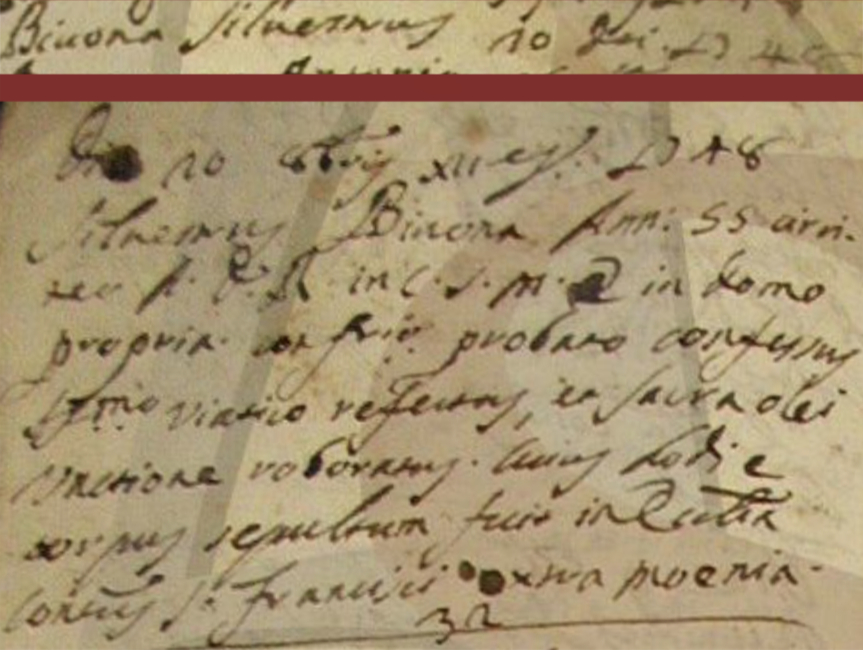 Biuona Siluestrus 10 8bri. 1748
Die 10 8bris xii ej. 1748
Siluestrus Biuona Ann: 55 circi-
ter A. D. R. in C. S. M. E in domo
propria. confrio. probato confessus
SSmo viatico refectus, et sacra olei
unctione roboratus. Cuius hodie
corpus sepultum fuit in Ecclia
Contus S. Francisci extra moenia.
32